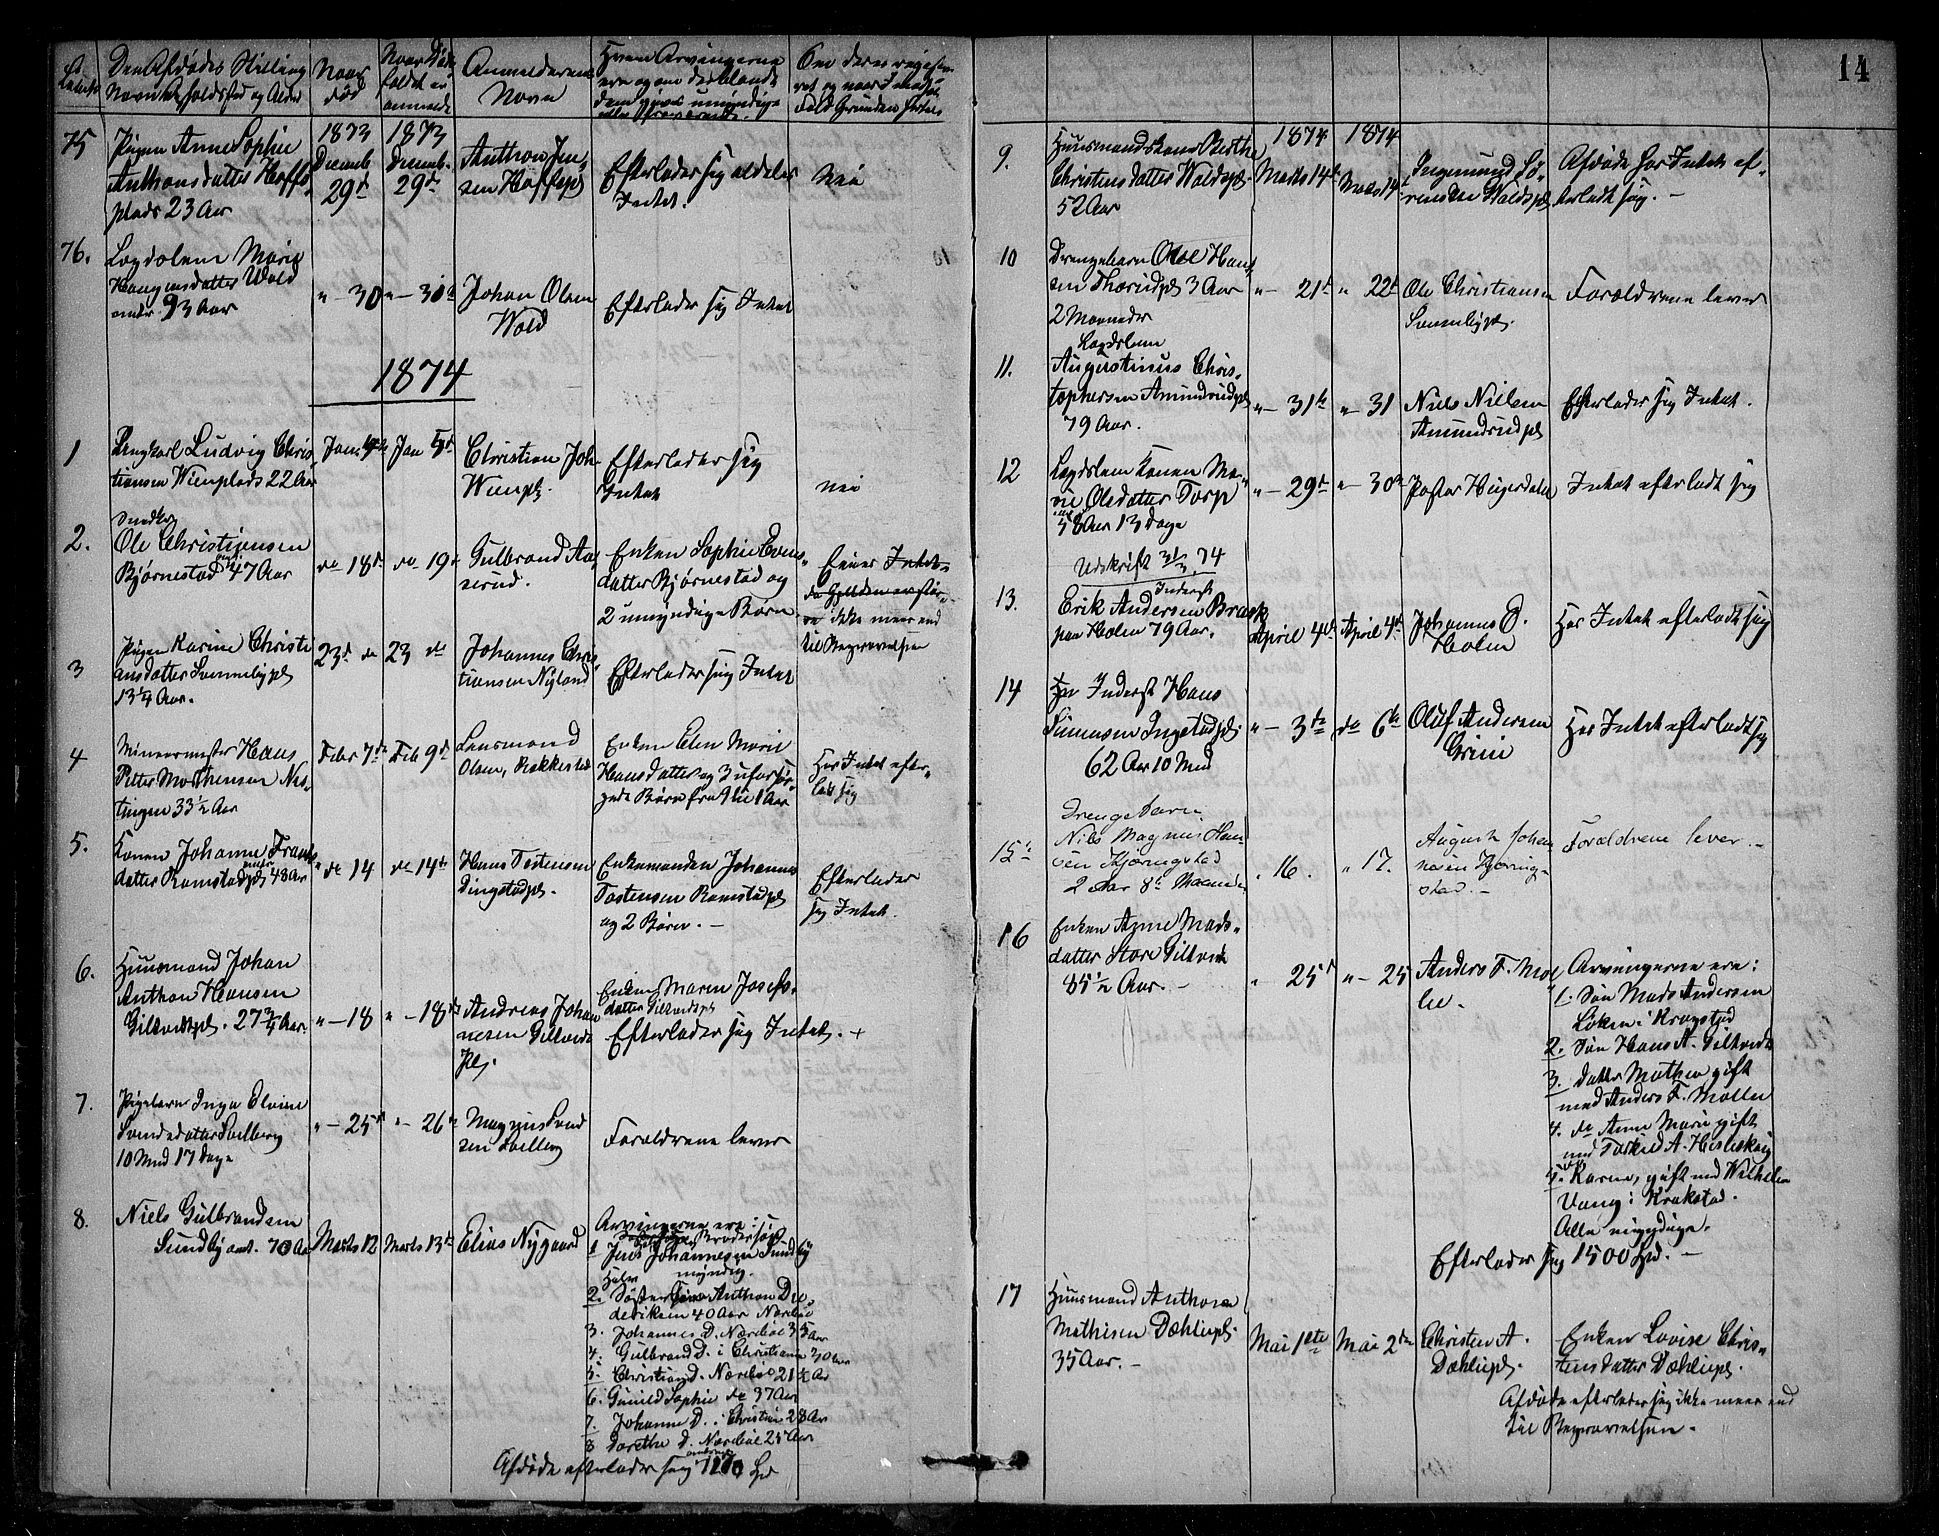 14
Den Afdødes Stilling
Navn
Naar død
Anmelderens
Navn
Hvem Arvingerne
ere og om deriblandt
75
Pigen Anne Sophie
Anthonsdatter Hoffs
plads 23 Aar
1873
Decemb
29de
1873
Decemb.
29de
Anthon Jen
sen Hoffspl
Efterlader sig aldeles
Intet.
Nei
76.
Lægdslem Marie
Haagensdatter Wold
omtr. 93 Aar
" - 30
" - 30te
Johan Olsen
Wold
Efterlader sig Intet
1874
1
Ungkarl Ludvig Chris
tiansen Wienplads 22 Aar
Christian Joh
Wienpl.
Efterlader sig
Intet
nei
2.
Snedker
Ole Christijensen
Bjørnestad 47 Aar
do 18de
do 19
Gulbrand Aa
serud.
Enken Sophie Evens
datter Bjørnestad og
2 umyndige Børn
Eier Intet
ikke meer end
til Begravelsen
3
Pigen Karine Christi
ansdatter Svenneby pl
13 1/4 Aar.
23de do
23 do
Johannes Chri
stiansen Nyland
Efterlader sig Intet
4
Mineermester Hans
Petter Morthensen Nes
tingen 33 1/2 Aar
Febr 7de
Feb 9de
Lensmand
Olsen, Rakkestad
Enken Elen Marie
Hansdatter og 3 uforsør
gede Børn fra 9 til 1 Aar
Har Intet efter
ladt sig
5.
Konen Johanne Frants
datter Ramstadpl 48 Aar
do 14
do 14de
Hans Tostensen
Dingstadpl.
Enkemanden Johannes
Tostensen Ramstadpl
og 2 Børn. -
Efterlader
sig Intet.
6.
Huusmand Johan
Anthon Hansen
Gilkvedtpl. 27 3/4 Aar.
" - 18
" - 18de
Andreas Johan
nesen Gilkvedt
Pl.
Enken Maren Josefs
datter Gilkvedtpl
Efterlader sig Intet. +
7.
Pigebarn Inga Elvine
Svendsdatter Solberg
10 Mnd 17 Dage
" - 25
" - 26
Magnus Svend
sen Solberg
Forældrene lever
8.
Niels Gulbrandsen
Sundby omt. 70 Aar
Marts 12
Marts 13de
Elias Nygaard
Arvingerne ere:
Brodersøn
1 Jens Johannesen Sundby
myndig.
2. Anthon Die
deriksen 40 Aar
3. Johannes D. 35 Aar
4. Gulbrand D. i Christiania 30 Aar
5. Christian D. 21 1/2 Aar
6. Gunild Sophie do 37 Aar
7. Johanne D. i Christian 28 Aar
8 Dorethe D. 25 Aar
Afdøde efterlader sig
9.
Huusmandskone Berthe
Christensdatter Woldspl.
52 Aar
1874
Marts 14de
1874
Marts 14
Ingemund Sø
rensen Woldspl
Afdøde har Intet ef
terladt sig. -
10
Drengebarn Olof Hans
en Thorudpl 3 Aar
2 Maaneder
" - 21de
" 22de
Ole Christiansen
Svennebypl.
Forældrene lever
11.
Lægdslem
Augustinus Chris
tophersen Amundrudpl
79 Aar.
" - 31te
" - 31
Niels Nilsen
Amundrudpl
Efterlader sig Intet.
12
Lægdslem Konen Ma
rie Olsdatter Torp
58 Aar 13 Dage
" - 29de
" - 30te
Intet efterladt sig
Udskrift 31/3 74
13.
Inderst
Erik Andersen Brask
paa Holen 79 Aar.
April 4de
April 4de
Johannes O.
Holen
Har Intet efterladt sig
14
Inderst Hans
Simensen Ingstadpl.
62 Aar 10 Mnd
" - 3de
do 6te
Oluf Andersen
Grini
Har Intet efterladt sig
15
Drengebarn
Nils Magnus Han
sen Kjæringstad
2 Aar 8 Maaneder
" 16.
" 17.
August Johan
nesen Kjæring
stad. -
Forældrene lever. -
16
Enken Anne Mads
datter Store Gilkvedt
85 1/2 Aar. -
" 25
" - 25
Anders F. Møl
ler.
Arvingerne ere:
1. Søn Mads Andersen
Løken i Kragstad
2. Søn Hans A. Gilkvedt
3. Datter Mathea gift
med Anders F. Møller
4. do Anne Marie gift
med Torkel A. Haslekaig
5. Karen, gift med Wilhelm
Vang i Krakstad.
Alle myndige.
Efterlader sig 1500 Spd. -
17
Huusmand Anthon
Mathisen Dæhlipl.
35 Aar. -
Mai 1ste
Mai 2den
Christen A.
Dæhlipl.
Enken Lovise Chris
tensdatter Dæhlipl.
Afdøde efterlader sig ikke meer end
til Begravelsen.